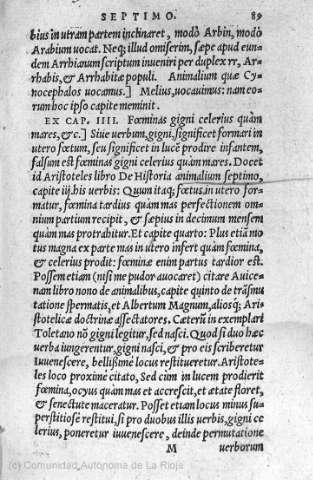 SEPTIMO. 89
bius in utram partem inclinaret, modò Arbin, modò
Arabium uocat. Neq; illud omiserim, sæpe apud eun-
dem Arrbianum scriptum inueniri per duplex rr, Ar-
rhabis, & Arrhabitæ populi. Animalium quæ Cy-
nocephalos uocamus.] Melius, uocauimus: nam eo-
rum hoc ipso capite meminit.
EX CAP. IIII. Fœminas gigni celerius quàm
mares, & c.] Siue uerbum, gigni, significet formari in
utero fœtum, seu significet in lucē prodire infantem,
falsum est fœminas gigni celerius quàm mares. Docet
id Aristoteles libro De Historia animalium septimo,
capite iiij. his uerbis: Quum itaq; fœtus in utero for-
matur, fœmina tardius quàm mas perfectionem om-
nium partium recipit, & sæpius in decimum mensem
quàm mas protrahitur. Et capite quarto: Plus etiā mo
tus magna ex parte mas in utero infert quàm fœmina,
& celerius prodit: fœminæ enim partus tardior est.
Possem etiam (nisi me pudor auocaret) citare Auicen-
nam libro nono de animalibus, capite quinto de trāsmu
tatione spermatis, et Albertum Magnum, aliosq; Ari-
stotelicæ doctrinæ assectatores. Cæterū in exemplari
Toletano nō gigni legitur, sed nasci. Quod si duo hæc
uerba iungerentur, gigni nasci, & pro eis scriberetur
Iuuenescere, bellißimè locus restitueretur. Aristote-
les loco proximè citato, Sed cùm in lucem prodierit
fœmina, ocyus quàm mas et accrescit, et ætate floret,
& senectute maceratur. Posset etiam locus minus su-
perstitiosè restitui, si pro duobus illis uerbis, gigni ce
lerius, poneretur iuuenescere, deinde permutatione
M uerborum
(c) Comunidad Autónoma de La Rioja